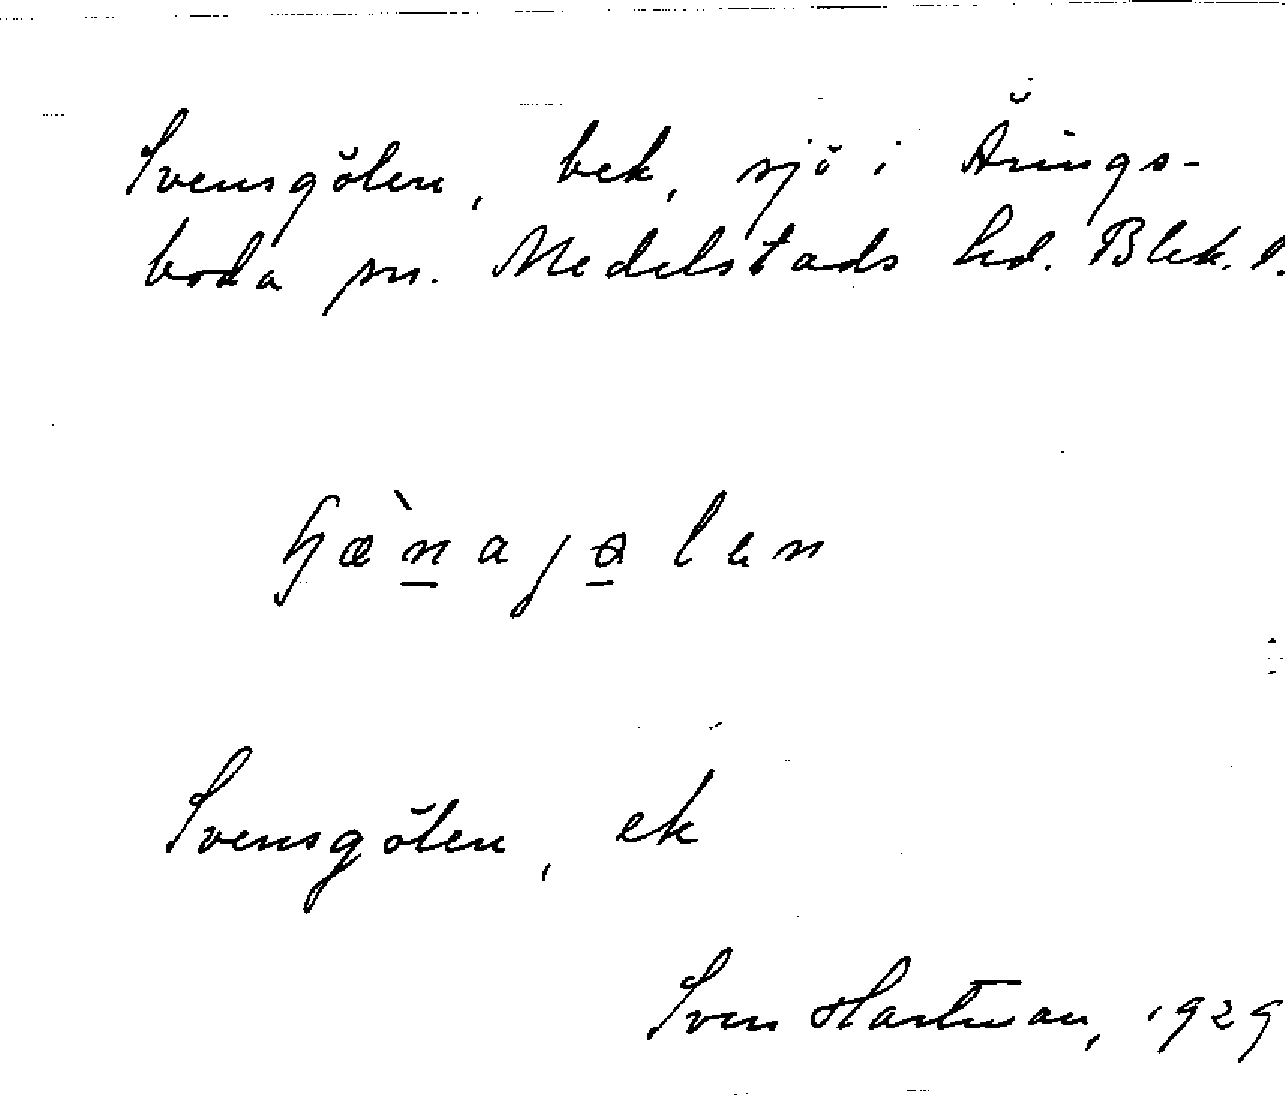 Svensgölen, bek, sjö i Årings-
boda sn. Medelstads hd. Blek. l.
Svensgölen, ek
Sven Hartman, 1929